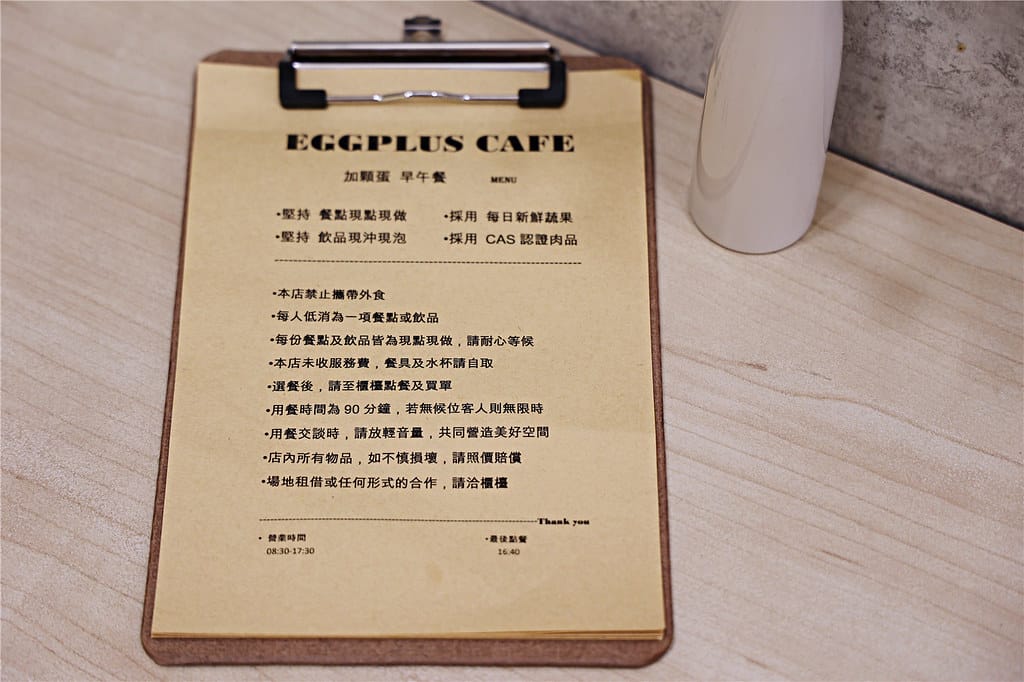 EGGPLUS CAFE
加顆蛋 早午餐 MENU
•堅持 餐點現點現做 •採用 每日新鮮蔬果
•堅持 飲品現沖現泡 •採用 CAS 認證肉品
•本店禁止攜帶外食
•每人低消為一項餐點或飲品
•每份餐點及飲品皆為現點現做，請耐心等候
•本店未收服務費，餐具及水杯請自取
•選餐後，請至櫃檯點餐及買單
•用餐時間為 90 分鐘，若無候位客人則無限時
•用餐交談時，請放輕音量，共同營造美好空間
•店內所有物品，如不慎損壞，請照價賠償
•場地租借或任何形式的合作，請洽櫃檯
Thank you
•營業時間 •最後點餐
08:30-17:30 16:40